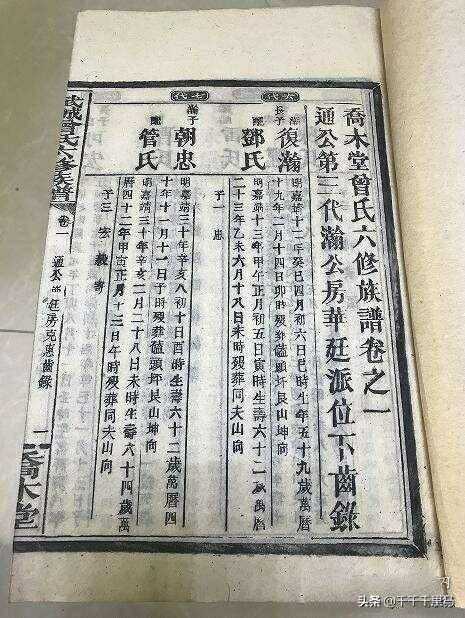 喬木堂曾氏六修族譜卷之一
通公第二代瀚公房華廷派位下齒錄
長子
復瀚
明嘉靖十二年癸巳四月初六日巳時生年五十九歲萬曆
十九年二月十四日卯時歿葬磕頭坪艮山坤向
配
鄧氏
明嘉靖十三年甲午正月初五日寅時生壽六十二歲萬曆
二十三年乙未六月十八日未時歿葬同夫山向
子一 忠
瀚子
朝忠
明嘉靖三十年辛亥八初十日酉時生壽六十二歲萬曆四
十年十二月十一日子時歿葬磕頭坪艮山坤向
配
管氏
明嘉靖三十年辛亥二月二十一日未時生壽六十四歲萬
曆四十二年甲寅正月十三日午時歿葬同夫山向
子三 宏 毅 寄
武城曾氏六修族譜
卷一
通公 房克惠齒錄
一
喬木堂
头条 @千千千里马